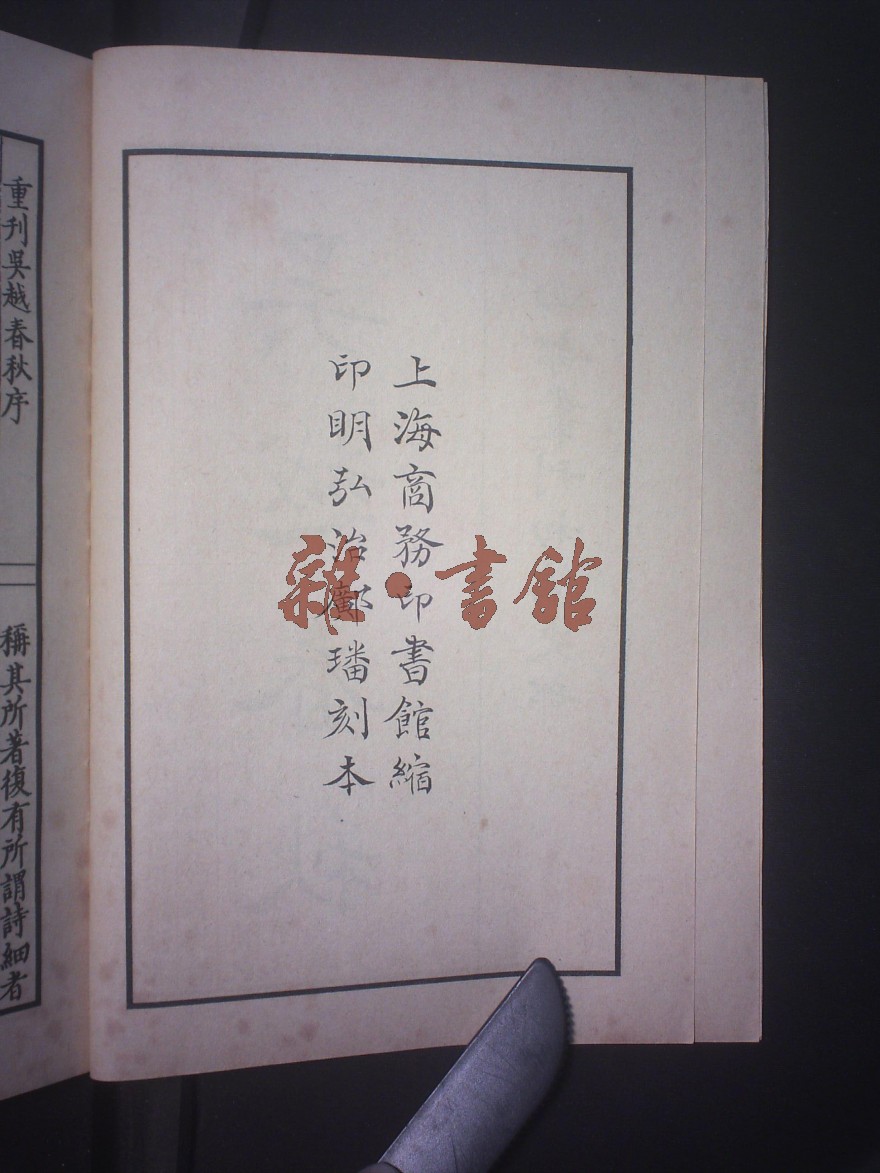 上海商務印書館縮
印明弘治鄺璠刻本
雜·書館
重刊吳越春秋序
稱其所著復有所謂詩細者